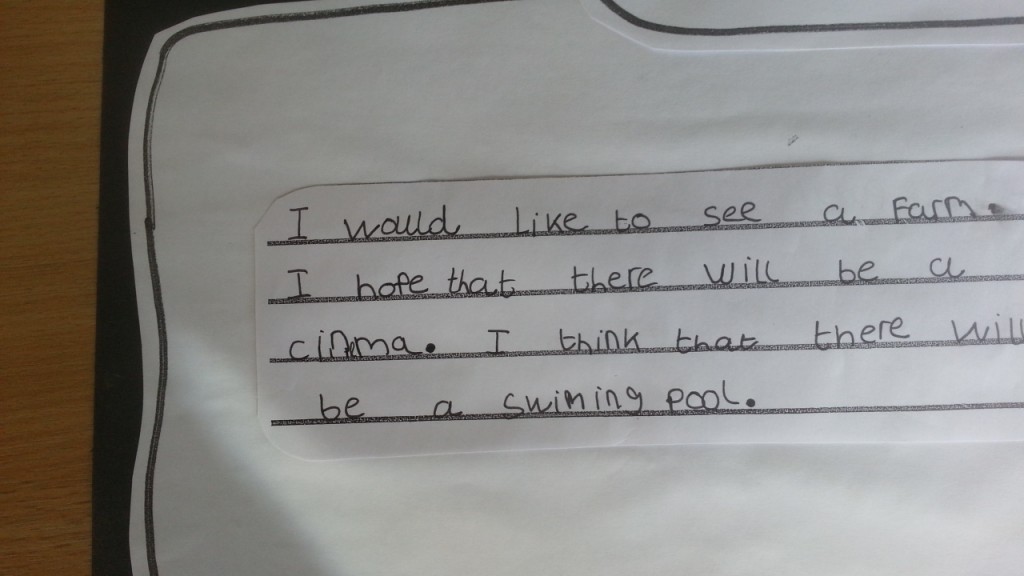 I would like to see a farm.
I hope that there will be a
cinma. I think that there will
be a swiming pool.